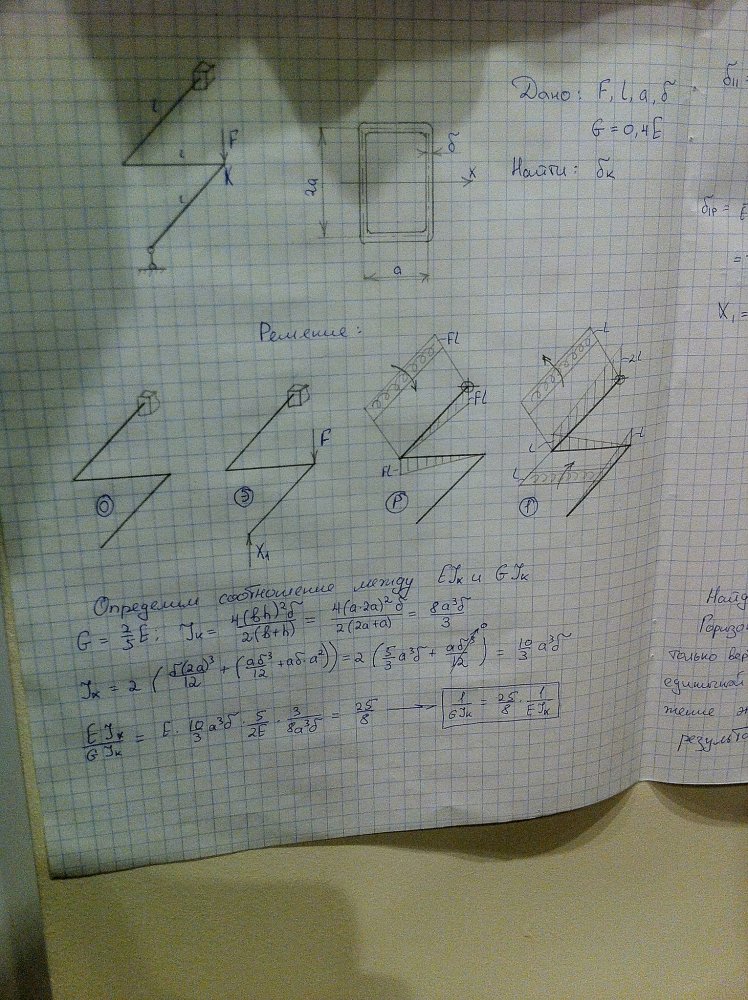 Дано: F, l, a, δ
G = 0,4E
Найти: δк
l
F
l
K
l
2a
δ
x
a
Решение:
Fl
Fl
Fl
l
2l
l
l
l
F
X₁
0
Э
P
1
Определим соотношение между EJₓ и GJк
G = 2/5 E; Jк = 4(bh)²δ / 2(b+h) = 4(a·2a)²δ / 2(2a+a) = 8a³δ / 3
Jₓ = 2 (δ(2a)³/12 + (aδ³/12 + aδ·a²)) = 2 (5/3 a³δ + aδ³/12 → 0) = 10/3 a³δ
EJₓ / GJк = E · 10/3 a³δ · 5/2E · 3/8a³δ = 25/8 → 1/GJк = 25/8 · 1/EJₓ
δ₁₁ =
δ₁р =
=
X₁ =
Найд
Горизон
только вер
единичной
жение э
результа